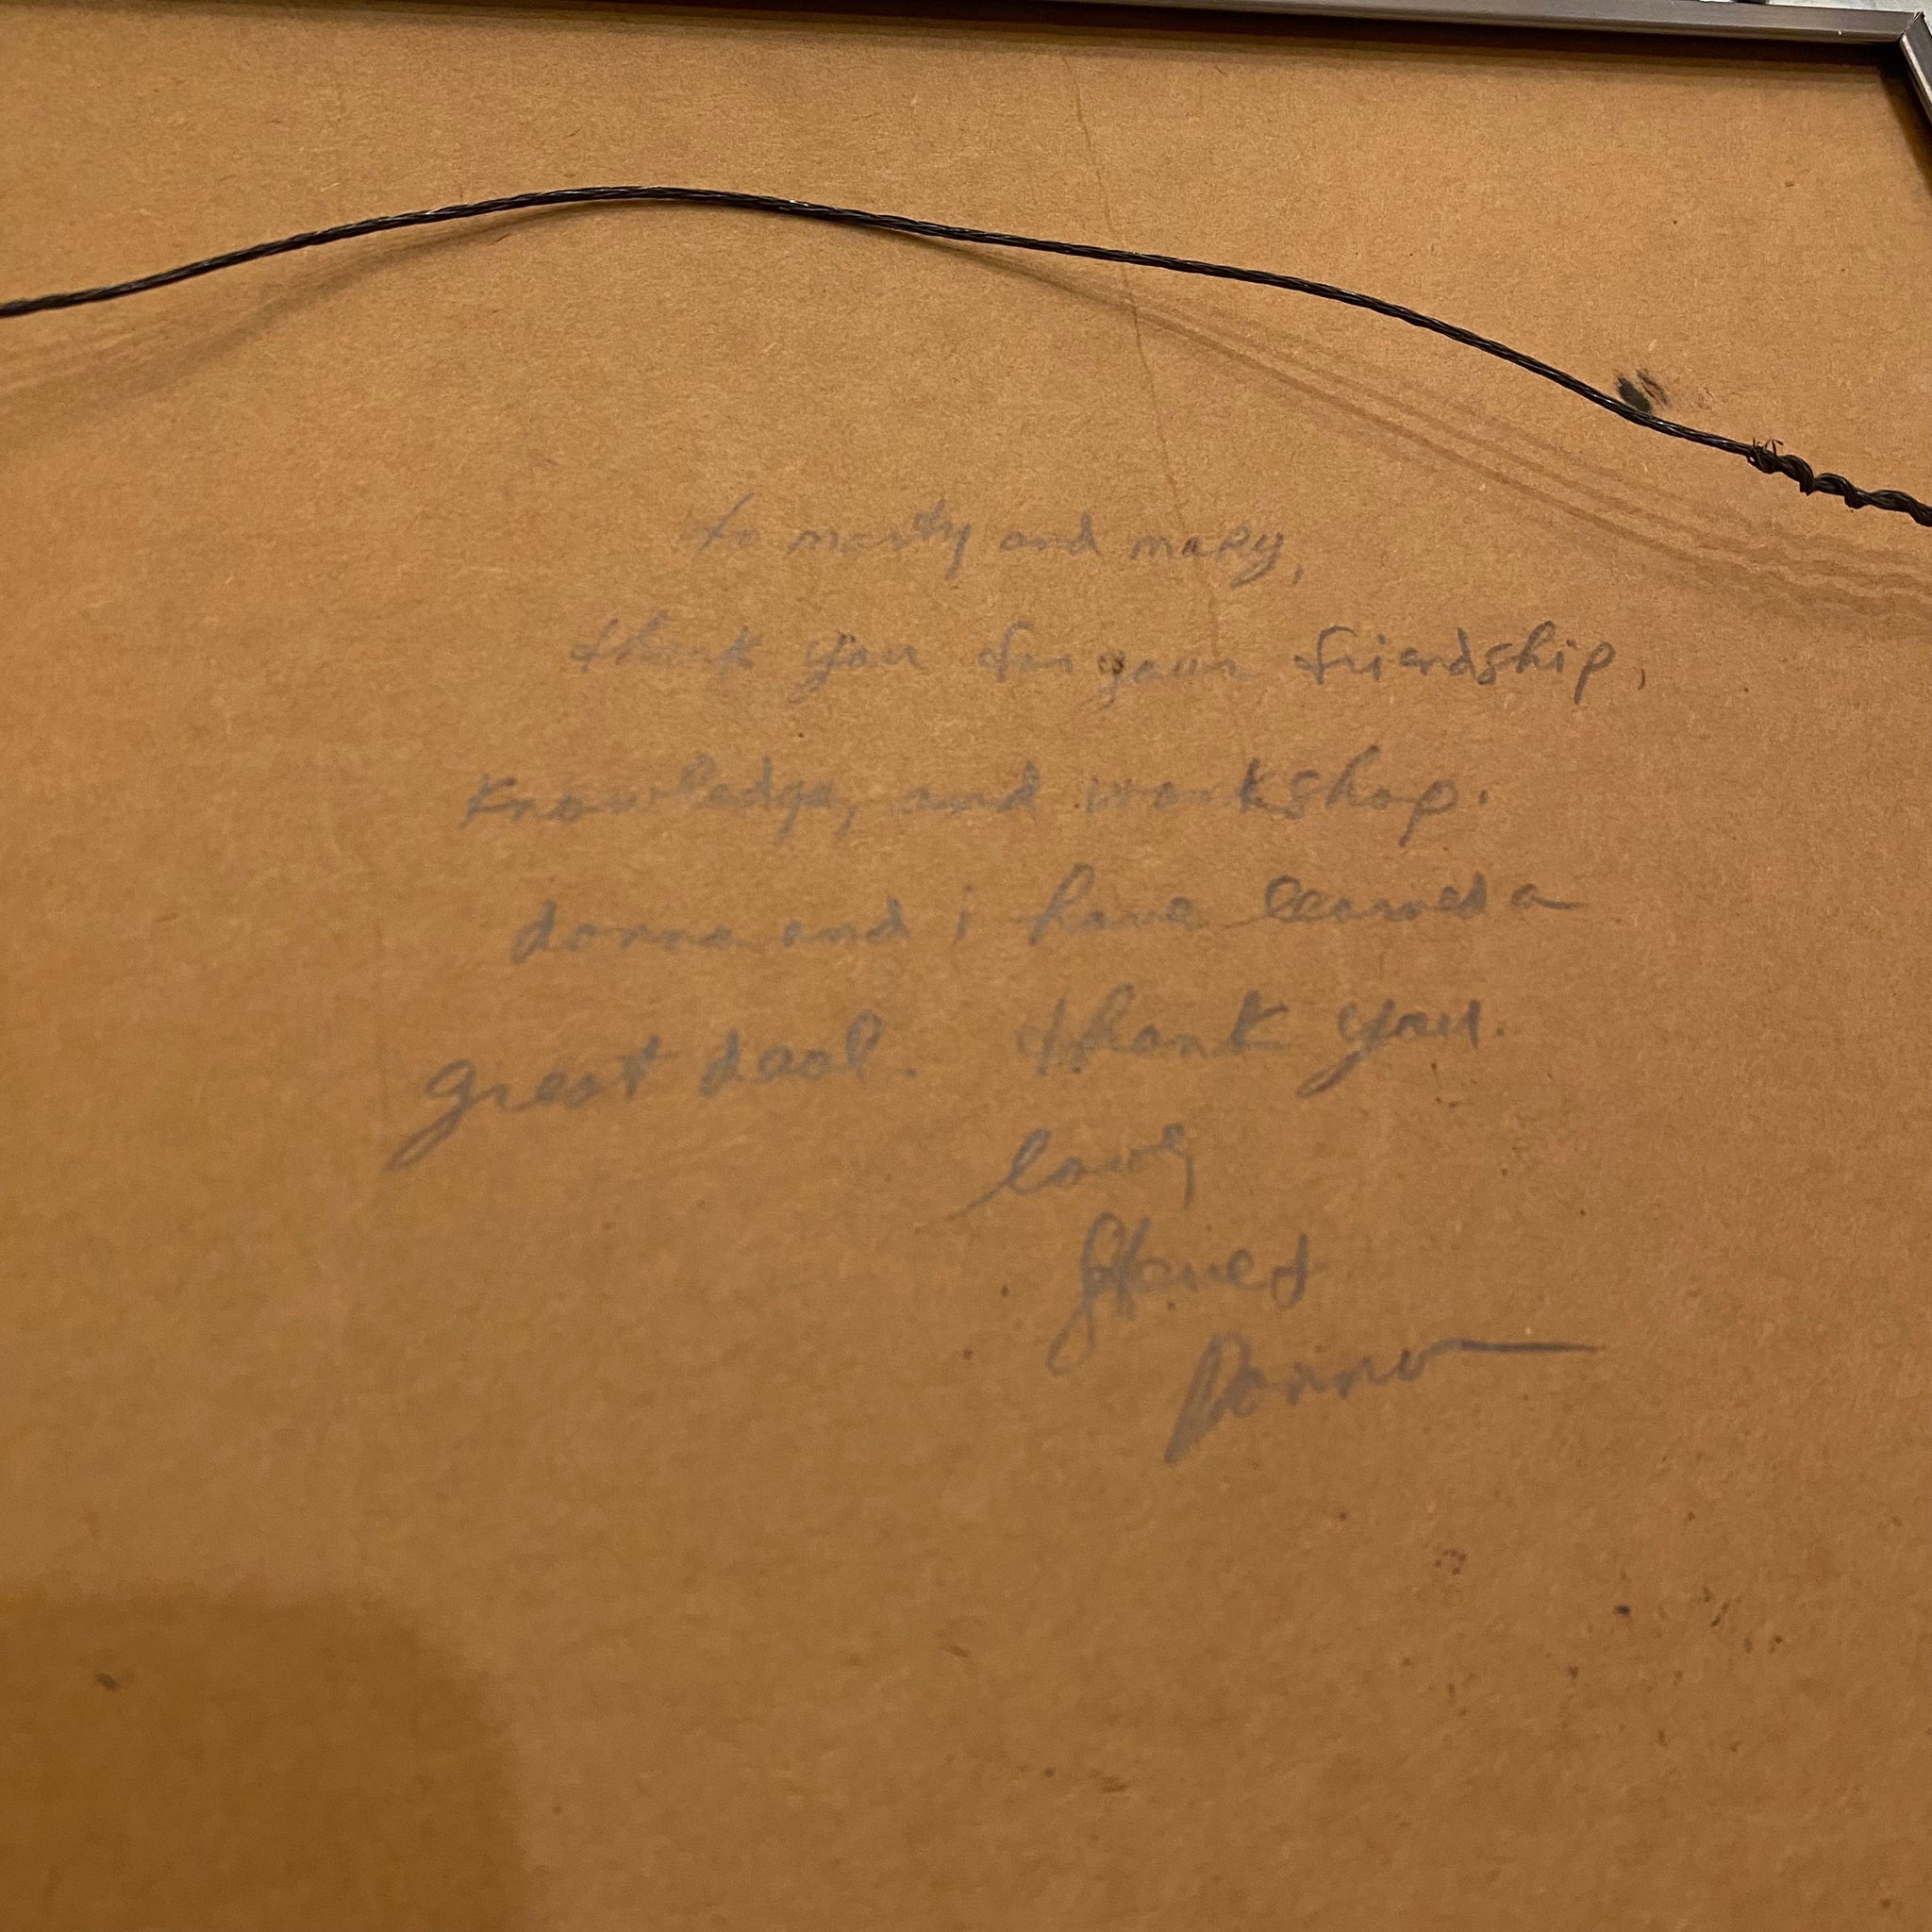 to marty and mary,
thank you for your friendship,
knowledge, and workshop.
donna and i have learned a
great deal. thank you.
love,
Steve &
Donna